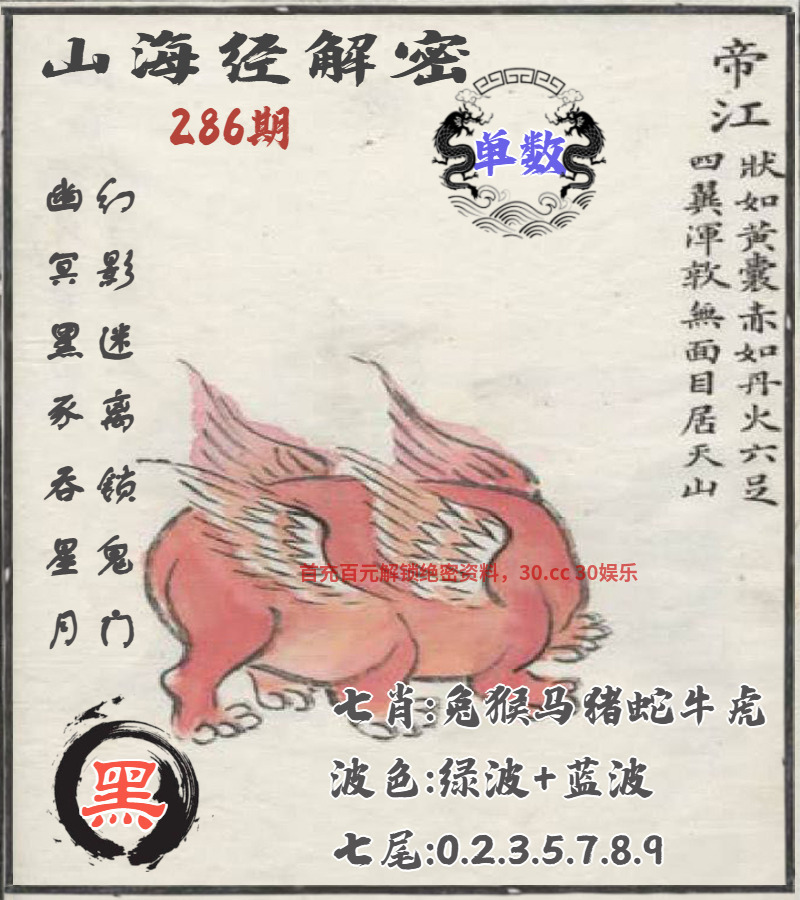 山海经解密
286期
单数
帝江
狀如黃囊赤如丹火六足
四翼渾敦無面目居天山
幻影迷离锁鬼门
幽冥黑豕吞星月
首充百元解锁绝密资料，30.cc 30娱乐
七肖:兔猴马猪蛇牛虎
波色:绿波+蓝波
七尾:0.2.3.5.7.8.9
黑